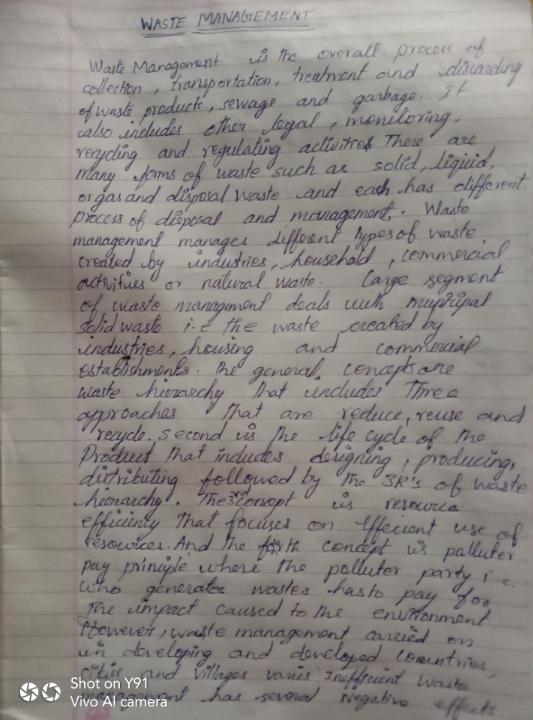 WASTE MANAGEMENT
Waste Management is the overall process of
collection, transportation, treatment and discarding
of waste products, sewage and garbage. It
also includes other legal, monitoring,
recycling and regulating activities There are
many forms of waste such as solid, liquid,
or gas and disposal waste and each has different
process of disposal and management. Waste
management manages different types of waste
created by industries, household, commercial
activities or natural waste. Large segment
of waste management deals with municipal
solid waste i.e the waste created by
industries, housing and commercial
establishments. The general concepts are
waste hierarchy that includes Three
approaches that are reduce, reuse and
recycle. Second is the life cycle of the
Product that includes designing, producing,
distributing followed by the 3R's of waste
hierarchy. The 3 concept is resource
efficiency that focuses on efficient use of
resources. And the concept is polluter
pay principle where the polluter party i.e.
who generates wastes has to pay for
the impact caused to the environment
However, waste management carried on
in developing and developed countries,
cities and Villages varies Inefficient waste
management has several Negative effects
Shot on Y91
Vivo AI camera